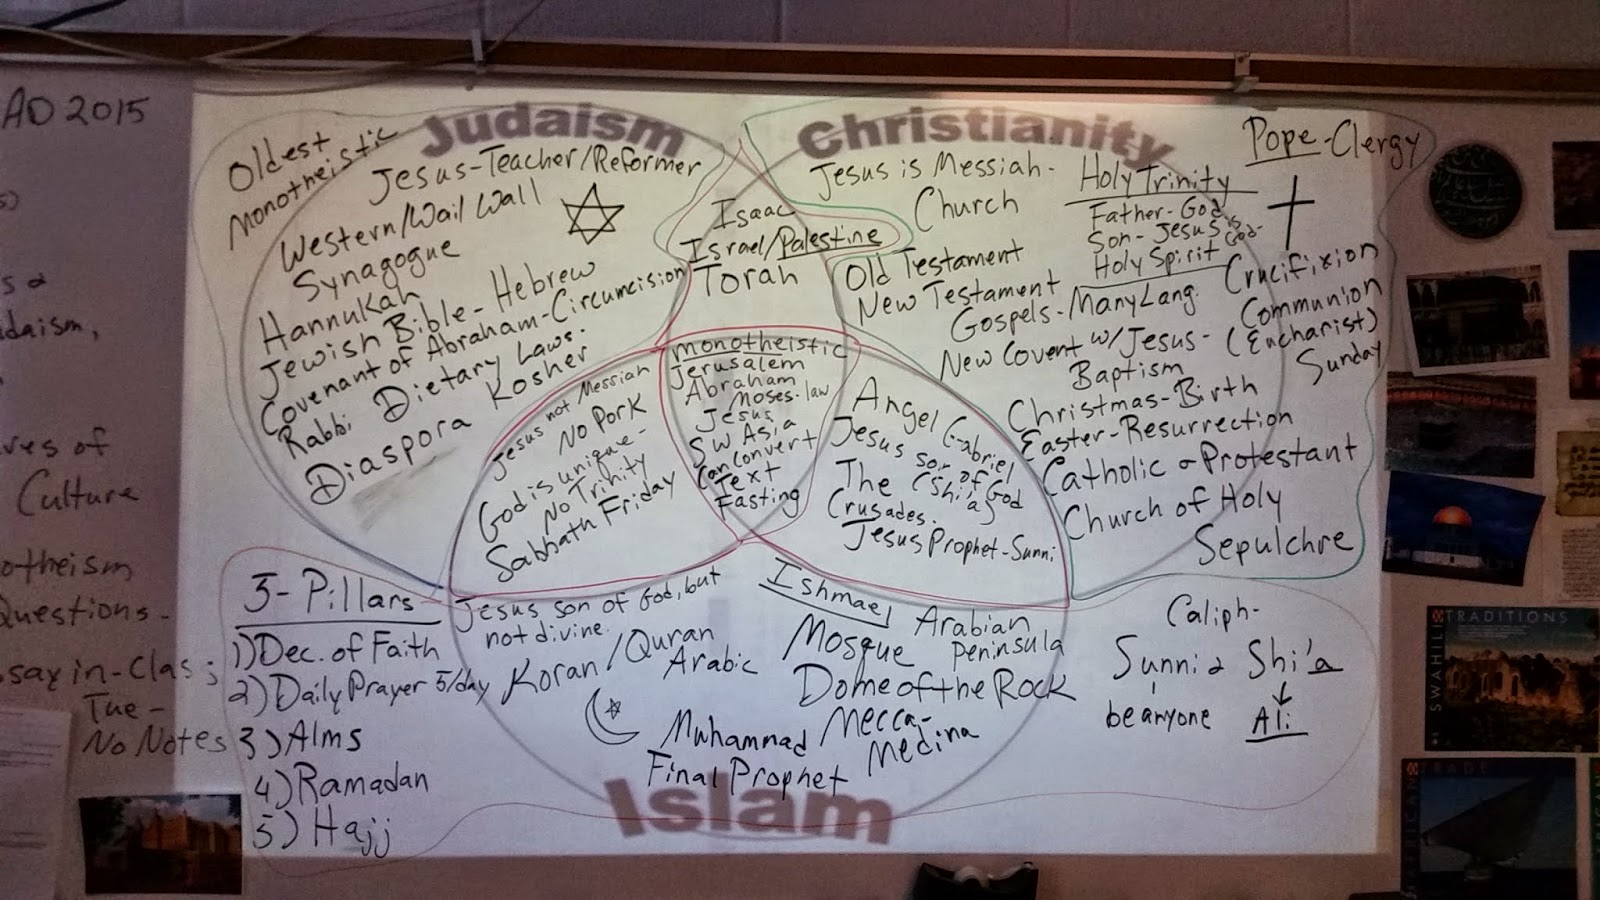 AD 2015
s)
s &
daism,
ves of
Culture
otheism
Questions-
say in-Class
The-
No Notes
Judaism
Oldest
Monotheistic
Jesus-Teacher/Reformer
Western/Wail Wall
Synagogue
Hannukah
Jewish Bible-Hebrew
Covenant of Abraham-Circumcision
Rabbi Dietary Laws-
Kosher
Diaspora
Isaac
Israel/Palestine
Torah
Christianity
Pope-Clergy
Jesus is Messiah-
Church
Holy Trinity
Father-God
Son-Jesus is God-
Holy Spirit
Old Testament
New Testament
Gospels-Many Lang.
New Covent w/Jesus-
Baptism
Crucifixion
Communion
(Encharist)
Sunday
Christmas-Birth
Easter-Resurrection
Catholic & Protestant
Church of Holy
Sepulchre
monotheistic
Jerusalem
Abraham
Moses-law
Jesus
SW Asia
Can Convert
Text
Fasting
Jesus not Messiah
No Pork
God is unique-
No Trinity
Sabbath Friday
Angel Gabriel
Jesus son of God
(Shi'a)
The
Crusades.
Jesus Prophet-Sunni
5-Pillars
1) Dec. of Faith
2) Daily Prayer 5/day
3) Alms
4) Ramadan
5) Hajj
Jesus son of God, but
not divine.
Koran/Quran
Arabic
Ishmael
Arabian
Peninsula
Mosque
Dome of the Rock
Muhammad
Final Prophet
Mecca-
Medina
Caliph-
Sunni & Shi'a
be anyone Ali
Islam
TRADITIONS
SWAHILI
TRADE